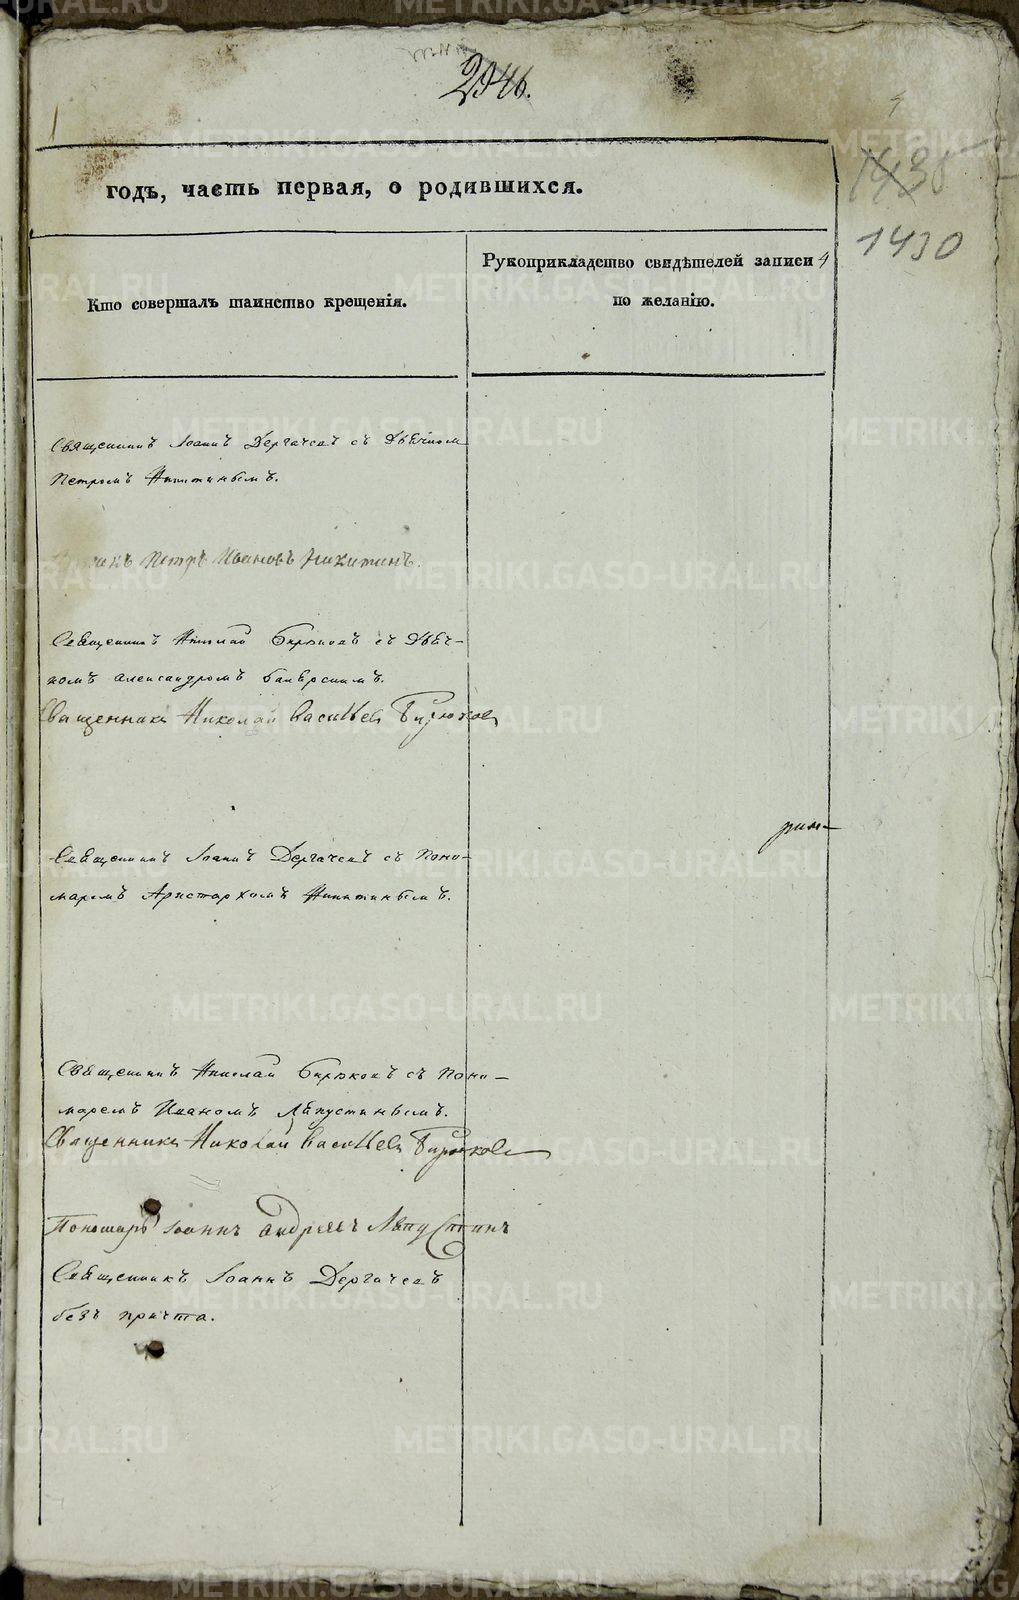 1430
1430
годъ, часть первая, о родившихся.
Кто совершалъ таинство крещенія.
Рукоприкладство свидѣтелей записи
по желанію.
Священникъ Іоаннъ Дергачевъ съ Дьячкомъ
Петромъ Никитинымъ.
Петръ Ивановъ Никитинъ.
Священникъ Николай Бирюковъ съ Дьяч-
комъ Александромъ
Священникъ Николай Васильевъ Бирюковъ
Священникъ Іоаннъ Дергачевъ съ Поно-
маремъ Аристархомъ Никитинымъ.
Священникъ Николай Бирюковъ съ Поно-
маремъ Иваномъ Ляпустинымъ.
Священникъ Николай Васильевъ Бирюковъ
Пономарь Іоаннъ Андреевъ Ляпустинъ
Священникъ Іоаннъ Дергачевъ
безъ причта.
METRIKI.GASO-URAL.RU